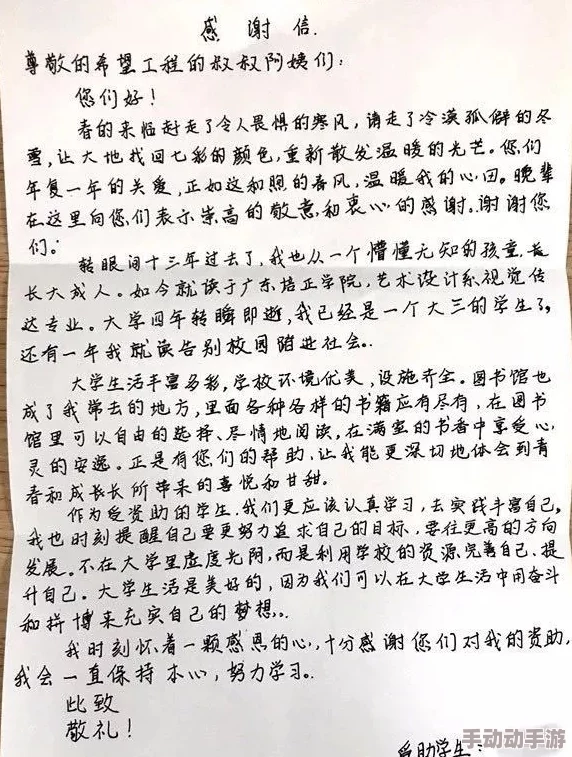 感谢信.
尊敬的希望工程的叔叔阿姨们:
您们好!
春的来临赶走了令人畏惧的寒风,请走了冷漠孤僻的冬
雪,让大地找回七彩的颜色,重新散发温暖的光芒。您们
年复一年的关爱,正如这和煦的春风,温暖我的心田。晚辈
在这里向您们表示崇高的敬意和衷心的感谢。谢谢您
们。
转眼间十三年过去了,我也从一个懵懂无知的孩童,长
长大成人。如今就读于广东培正学院,艺术设计系视觉传
达专业。大学四年转瞬即逝,我已经是一个大三的学生了,
还有一年我就该告别校园踏进社会。
大学生活丰富多彩,学校环境优美,设施齐全。图书馆也
成了我常去的地方,里面各种各样的书籍应有尽有,在图书
馆里可以自由的选择、尽情地阅读,在满室的书香中享受心
灵的安逸。正是有您们的帮助,让我能更深切地体会到青
春和成长长所带来的喜悦和甘甜。
作为受资助的学生,我们更应该认真学习,去实践丰富自己。
我也时刻提醒自己要更努力追求自己的目标,要往更高的方向
发展。不在大学里虚度光阴,而是利用学校的资源完善自己、提
升自己。大学生活是美好的,因为我们可以在大学生活中用奋斗
和拼搏来充实自己的梦想。
我时刻怀着一颗感恩的心,十分感谢您们对我的资助,
我会一直保持本心,努力学习。
此致
敬礼!
受助学生:
手动动手游